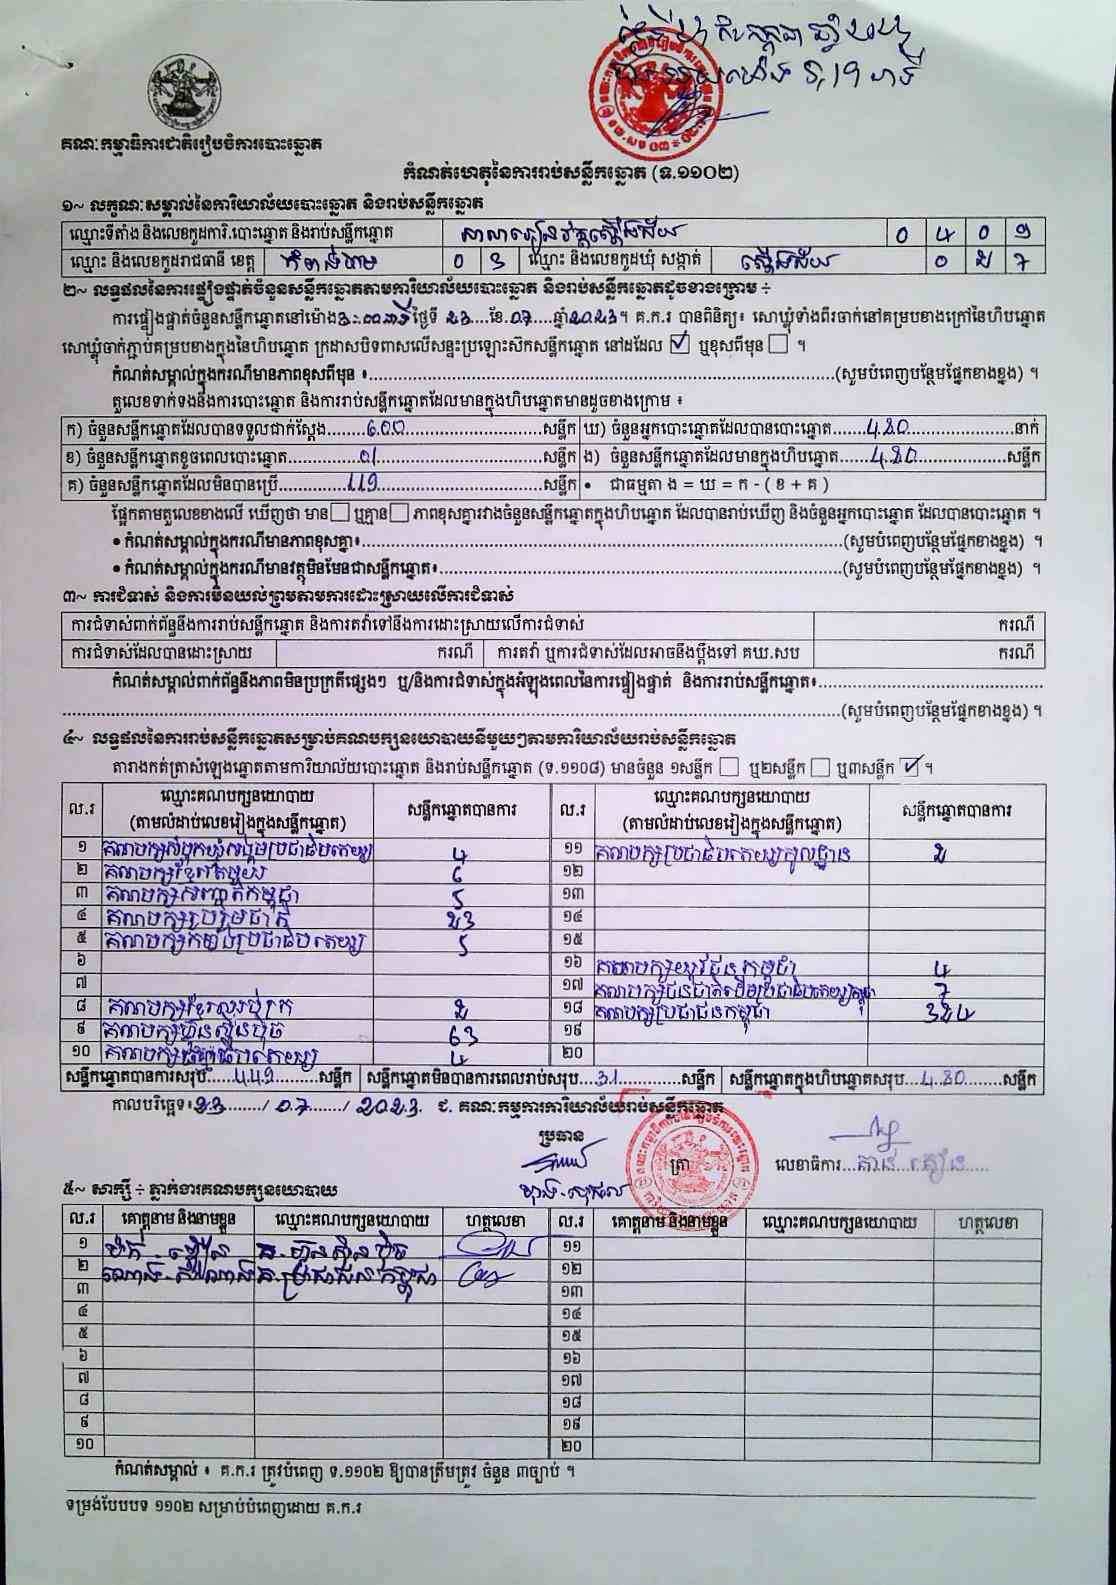 គណៈកម្មាធិការជាតិរៀបចំការបោះឆ្នោត
កំណត់ហេតុនៃការរាប់សន្លឹកឆ្នោត (ទ.១១០២)
១~ លក្ខណៈសម្គាល់នៃការិយាល័យបោះឆ្នោត និងរាប់សន្លឹកឆ្នោត
ឈ្មោះទីតាំង និងលេខកូដការិ.បោះឆ្នោត និងរាប់សន្លឹកឆ្នោត សាលារៀនវត្តស្ទឹងជ័យ 0 4 0 9
ឈ្មោះ និងលេខកូដរាជធានី ខេត្ត កំពង់ចាម 0 3 ឈ្មោះ និងលេខកូដឃុំ សង្កាត់ ស្ទឹងជ័យ 0 2 7
២~ លទ្ធផលនៃការផ្ទៀងផ្ទាត់ចំនួនសន្លឹកឆ្នោតតាមការិយាល័យបោះឆ្នោត និងរាប់សន្លឹកឆ្នោតដូចខាងក្រោម ÷
ការផ្ទៀងផ្ទាត់ចំនួនសន្លឹកឆ្នោតនៅម៉ោង 3:00នាទី ថ្ងៃទី 23 ខែ.07 ឆ្នាំ2023។ គ.ក.រ បានពិនិត្យ៖ សោឃ្លុំទាំងពីរចាក់នៅគម្របខាងក្រៅនៃហិបឆ្នោត
សោឃ្លុំចាក់ភ្ជាប់គម្របខាងក្នុងនៃហិបឆ្នោត ក្រដាសបិទពាសលើសន្ទះប្រឡោះសឹកសន្លឹកឆ្នោត នៅដដែល ☑ ឬខុសពីមុន ☐ ។
កំណត់សម្គាល់ក្នុងករណីមានភាពខុសពីមុន ៖ (សូមបំពេញបន្ថែមផ្នែកខាងខ្នង) ។
តួលេខទាក់ទងនឹងការបោះឆ្នោត និងការរាប់សន្លឹកឆ្នោតដែលមានក្នុងហិបឆ្នោតមានដូចខាងក្រោម ៖
ក) ចំនួនសន្លឹកឆ្នោតដែលបានទទួលជាក់ស្តែង 600 សន្លឹក ឃ) ចំនួនអ្នកបោះឆ្នោតដែលបានបោះឆ្នោត 480 នាក់
ខ) ចំនួនសន្លឹកឆ្នោតខូចពេលបោះឆ្នោត 01 សន្លឹក ង) ចំនួនសន្លឹកឆ្នោតដែលមានក្នុងហិបឆ្នោត 480 សន្លឹក
គ) ចំនួនសន្លឹកឆ្នោតដែលមិនបានប្រើ 119 សន្លឹក • ជាធម្មតា ង = ឃ = ក - ( ខ + គ )
ផ្អែកតាមតួលេខខាងលើ ឃើញថា មាន ☐ ឬគ្មាន ☐ ភាពខុសគ្នារវាងចំនួនសន្លឹកឆ្នោតក្នុងហិបឆ្នោត ដែលបានរាប់ឃើញ និងចំនួនអ្នកបោះឆ្នោត ដែលបានបោះឆ្នោត ។
• កំណត់សម្គាល់ក្នុងករណីមានភាពខុសគ្នា៖ (សូមបំពេញបន្ថែមផ្នែកខាងខ្នង) ។
• កំណត់សម្គាល់ក្នុងករណីមានវត្ថុមិនមែនជាសន្លឹកឆ្នោត៖ (សូមបំពេញបន្ថែមផ្នែកខាងខ្នង) ។
៣~ ការជំទាស់ និងការមិនយល់ព្រមតាមការដោះស្រាយលើការជំទាស់
ការជំទាស់ពាក់ព័ន្ធនឹងការរាប់សន្លឹកឆ្នោត និងការតវ៉ាទៅនឹងការដោះស្រាយលើការជំទាស់ ករណី
ការជំទាស់ដែលបានដោះស្រាយ ករណី ការតវ៉ា ឬការជំទាស់ដែលអាចនឹងប្តឹងទៅ គឃ.សប ករណី
កំណត់សម្គាល់ពាក់ព័ន្ធនឹងភាពមិនប្រក្រតីផ្សេងៗ ឬ/និងការជំទាស់ក្នុងអំឡុងពេលនៃការផ្ទៀងផ្ទាត់ និងការរាប់សន្លឹកឆ្នោត៖
(សូមបំពេញបន្ថែមផ្នែកខាងខ្នង) ។
៤~ លទ្ធផលនៃការរាប់សន្លឹកឆ្នោតសម្រាប់គណបក្សនយោបាយនីមួយៗតាមការិយាល័យរាប់សន្លឹកឆ្នោត
តារាងកត់ត្រាសំឡេងឆ្នោតតាមការិយាល័យបោះឆ្នោត និងរាប់សន្លឹកឆ្នោត (ទ.១១០៨) មានចំនួន ១សន្លឹក ☐ ឬ២សន្លឹក ☐ ឬ៣សន្លឹក ☑ ។
ល.រ ឈ្មោះគណបក្សនយោបាយ (តាមលំដាប់លេខរៀងក្នុងសន្លឹកឆ្នោត) សន្លឹកឆ្នោតបានការ ល.រ ឈ្មោះគណបក្សនយោបាយ (តាមលំដាប់លេខរៀងក្នុងសន្លឹកឆ្នោត) សន្លឹកឆ្នោតបានការ
១ គណបក្សសំបុកឃ្មុំសង្គមប្រជាធិបតេយ្យ 4 ១១ គណបក្សប្រជាធិបតេយ្យមូលដ្ឋាន 2
២ គណបក្សខ្មែរតែមួយ 6 ១២
៣ គណបក្សសញ្ជាតិកម្ពុជា 5 ១៣
៤ គណបក្សរួបរួមជាតិ 23 ១៤
៥ គណបក្សកម្លាំងប្រជាធិបតេយ្យ 5 ១៥
៦ ១៦ គណបក្សយុវជនកម្ពុជា 4
៧ ១៧ គណបក្សជនជាតិដើមប្រជាធិបតេយ្យកម្ពុជា 7
៨ គណបក្សខ្មែរឈប់ក្រ 2 ១៨ គណបក្សប្រជាជនកម្ពុជា 324
៩ គណបក្សហ្វ៊ុនស៊ិនប៉ិច 63 ១៩
១០ គណបក្សធម្មាធិបតេយ្យ 4 ២០
សន្លឹកឆ្នោតបានការសរុប 449 សន្លឹក សន្លឹកឆ្នោតមិនបានការពេលរាប់សរុប 31 សន្លឹក សន្លឹកឆ្នោតក្នុងហិបឆ្នោតសរុប 480 សន្លឹក
កាលបរិច្ឆេទ៖ 23 / 07 / 2023 ជ. គណៈកម្មការការិយាល័យរាប់សន្លឹកឆ្នោត
ប្រធាន
ត្រា លេខាធិការ
៥~ សាក្សី ÷ ភ្នាក់ងារគណបក្សនយោបាយ
ល.រ គោត្តនាម និងនាមខ្លួន ឈ្មោះគណបក្សនយោបាយ ហត្ថលេខា ល.រ គោត្តនាម និងនាមខ្លួន ឈ្មោះគណបក្សនយោបាយ ហត្ថលេខា
១ គ.ហ្វ៊ុនស៊ិនប៉ិច ១១
២ គ.ប្រជាជនកម្ពុជា ១២
៣ ១៣
៤ ១៤
៥ ១៥
៦ ១៦
៧ ១៧
៨ ១៨
៩ ១៩
១០ ២០
កំណត់សម្គាល់ ៖ គ.ក.រ ត្រូវបំពេញ ទ.១១០២ ឱ្យបានត្រឹមត្រូវ ចំនួន ៣ច្បាប់ ។
ទម្រង់បែបបទ ១១០២ សម្រាប់បំពេញដោយ គ.ក.រ